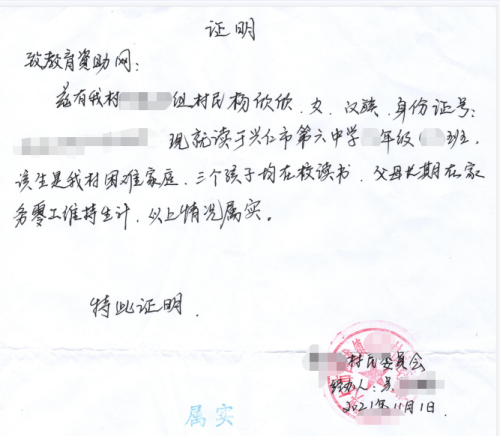 证明
致教育资助网：
兹有我村 组村民杨欣欣，女，汉族，身份证号：
现就读于兴仁市第六中学 年级 班，
该生是我村困难家庭，三个孩子均在校读书，父母长期在家
务零工维持生计，以上情况属实。
特此证明．
村民委员会
经办人：吴
2021年11月1日．
属实